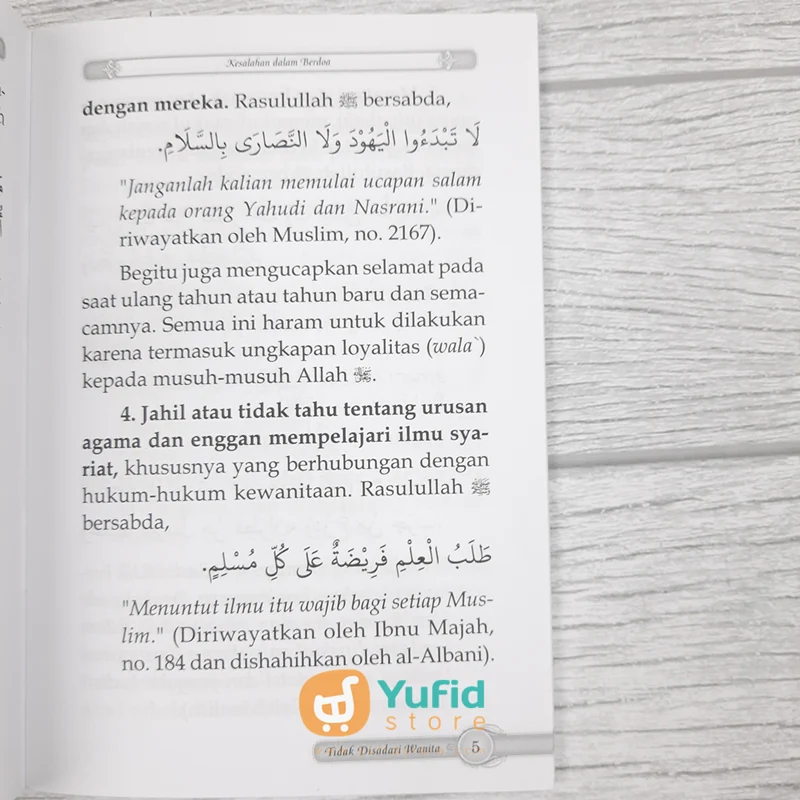 Kesalahan dalam Berdoa
dengan mereka. Rasulullah ﷺ bersabda,
لَا تَبْدَءُوا الْيَهُوْدَ وَلَا النَّصَارَى بِالسَّلَامِ.
"Janganlah kalian memulai ucapan salam
kepada orang Yahudi dan Nasrani." (Di-
riwayatkan oleh Muslim, no. 2167).
Begitu juga mengucapkan selamat pada
saat ulang tahun atau tahun baru dan sema-
camnya. Semua ini haram untuk dilakukan
karena termasuk ungkapan loyalitas (wala`)
kepada musuh-musuh Allah.
4. Jahil atau tidak tahu tentang urusan
agama dan enggan mempelajari ilmu sya-
riat, khususnya yang berhubungan dengan
hukum-hukum kewanitaan. Rasulullah ﷺ
bersabda,
طَلَبُ الْعِلْمِ فَرِيْضَةٌ عَلَى كُلِّ مُسْلِمٍ.
"Menuntut ilmu itu wajib bagi setiap Mus-
lim." (Diriwayatkan oleh Ibnu Majah,
no. 184 dan dishahihkan oleh al-Albani).
Yufid
store
Tidak Disadari Wanita 5